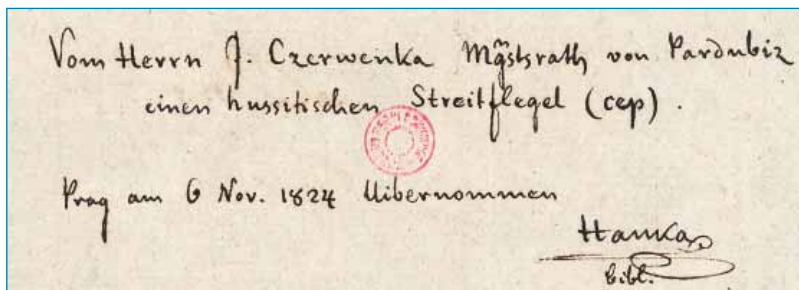 Vom Herrn J. Czerwenka Mgstsrath von Pardubiz
einen hussitischen Streitflegel (cep).
Prag am 6 Nov. 1824 Uibernommen
Hanka
bibl.